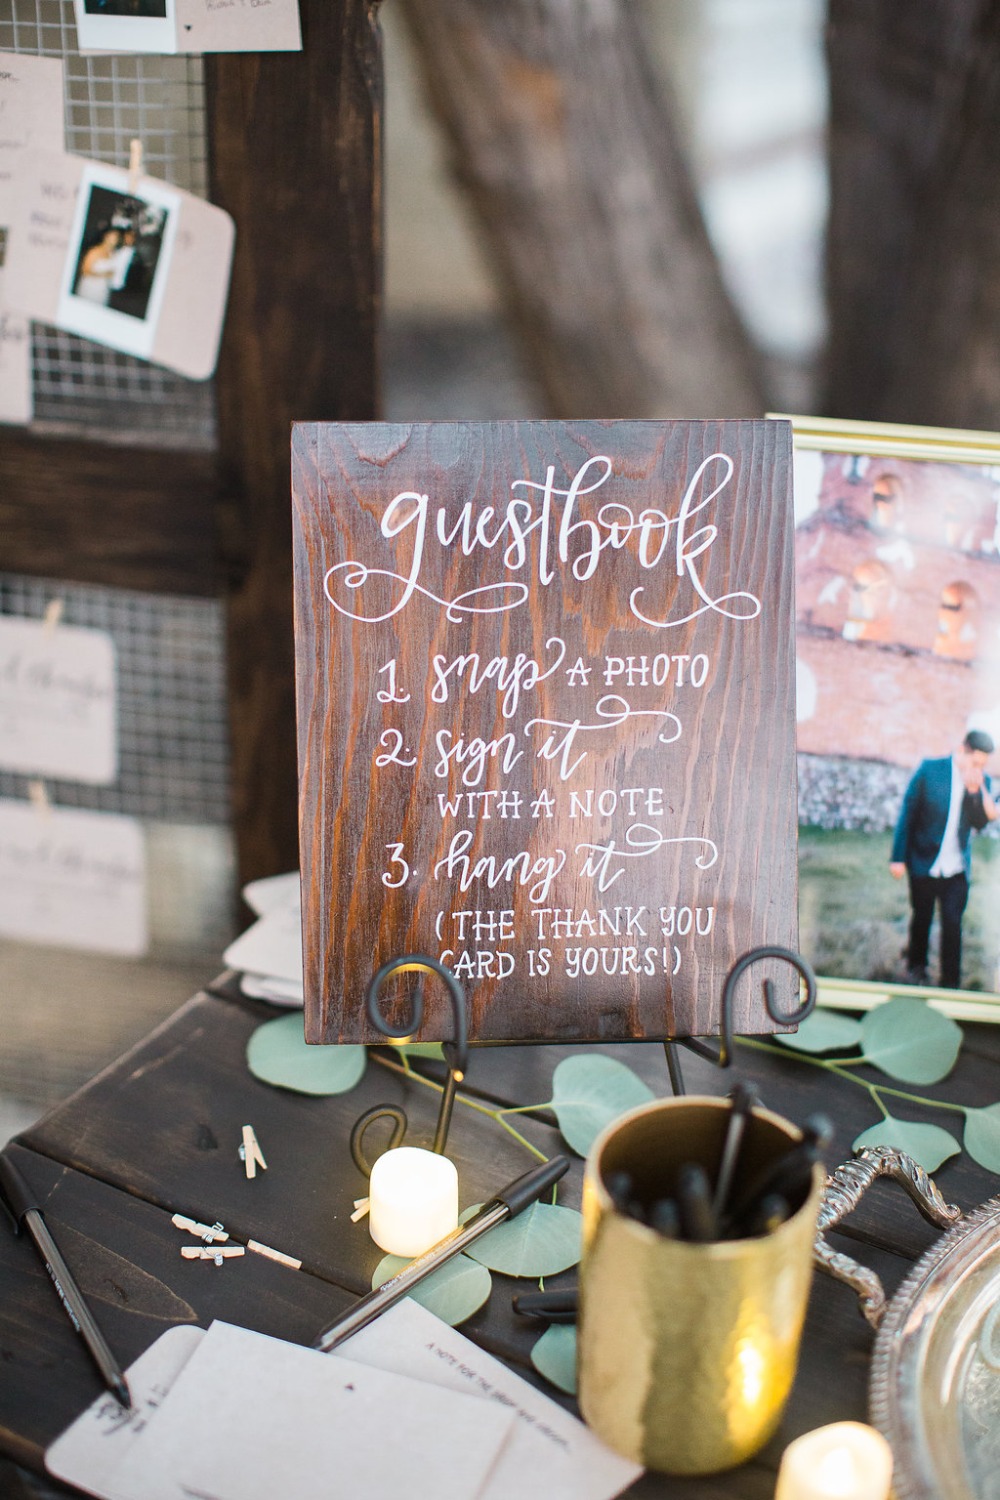 guestbook
1. snap A PHOTO
2. sign it
WITH A NOTE
3. hang it
(THE THANK YOU
CARD IS YOURS!)
A NOTE FOR THE BRIDE AND GROOM...